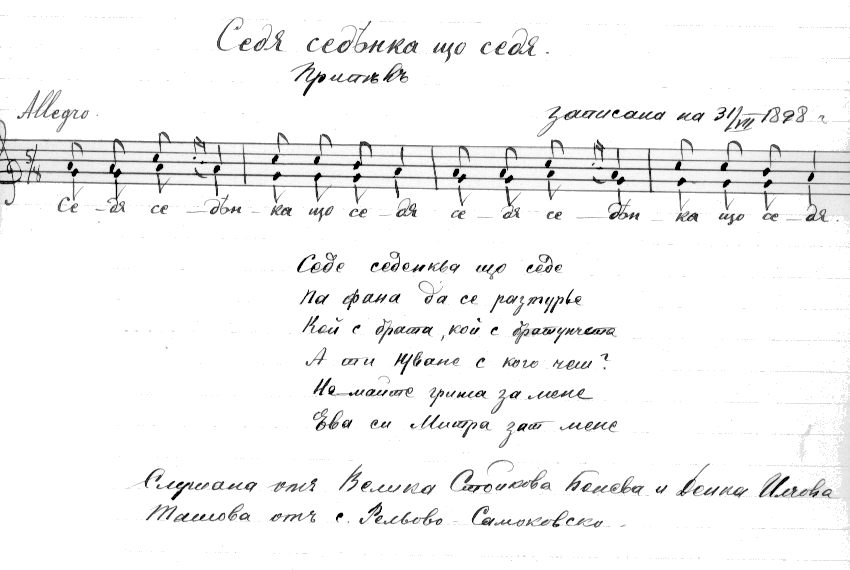 Седя седѣнка що седя.
Припѣвъ
Allegro.
записана на 31/VII 1898 г
5/8
Се - дя се - дѣн - ка що се - дя се - дя се - дѣн - ка що се - дя.
Седе седенква що седе
Па фана да се разтурье
Кой с брата, кой с братунчета
А ти Юване с кого чеш?
Не майте грижа за мене
Ева си Митра зат мене
Слушана отъ Велика Стоикова Бонева и Денка Илчова
Ташова отъ с. Рельово - Самоковско.